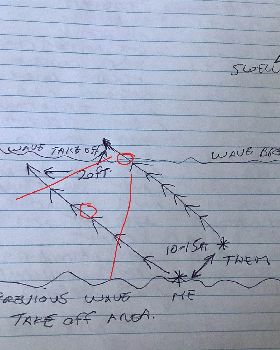 SWELL
WAVE TAKE OFF
WAVE BRE
20ft
10-15ft
THEM
PREVIOUS WAVE
ME
TAKE OFF AREA.